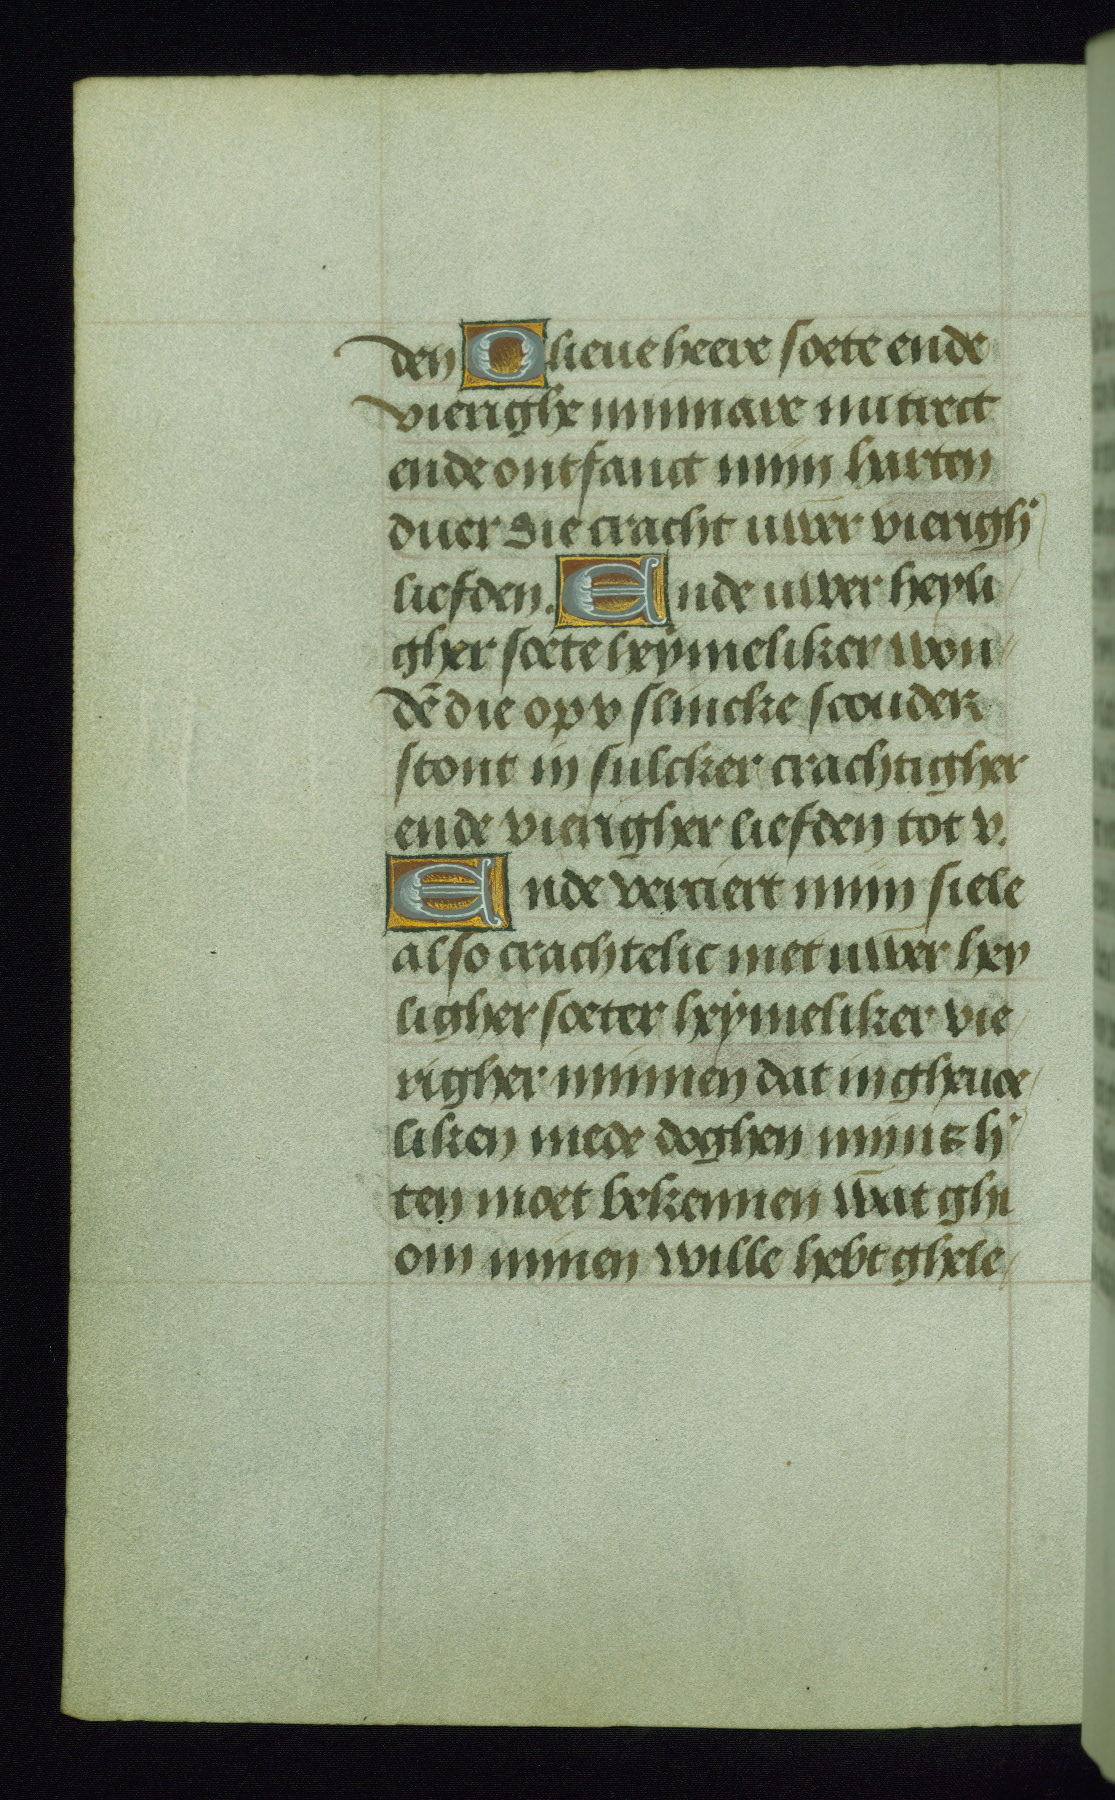 den O lieue heere soete ende
vierighe minnare nu trect
ende ontfanct mijn harten
duer die cracht uwer vierigh'
liefden. Ende uwer heyli
gher soete heymeliker won
dē die op v slincke scouder
stont in sulcker crachtigher
ende vierigher liefden tot v.
Ende verciert mijn siele
also crachtelic met uwer hey
ligher soeter heymeliker vie
righer minnen dat in gheuoe
liken mede doghen mijns h'
ten moet bekennen wat ghi
om minen wille hebt ghele